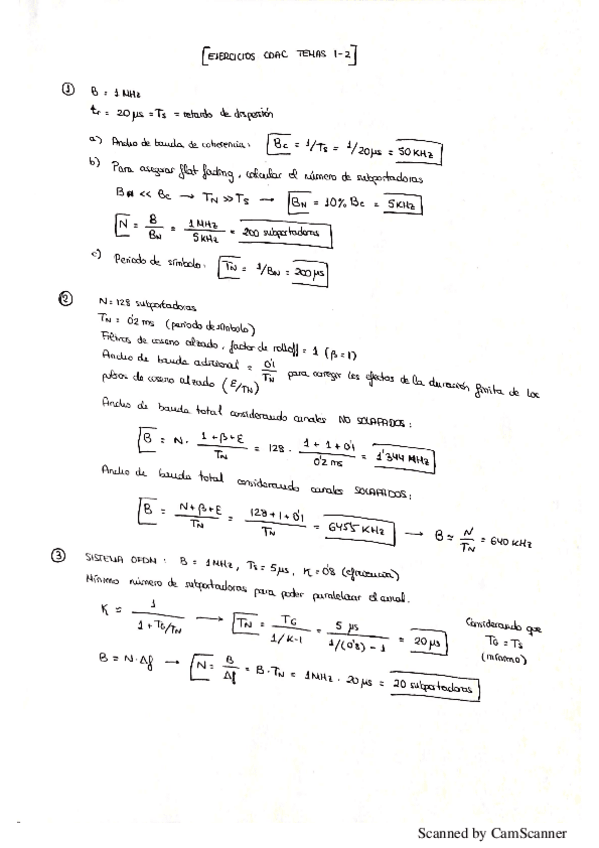 [EJERCICIOS CDAC TEMAS 1-2]
① B = 1 MHz
tr = 20 μs = Ts = retardo de dispersión
a) Ancho de banda de coherencia: Bc = 1/Ts = 1/20μs = 50 KHz
b) Para asegurar flat fading, calcular el número de subportadoras
BN << Bc → TN >> Ts → BN = 10% Bc = 5 KHz
N = B/BN = 1 MHz/5 KHz = 200 subportadoras
c) Periodo de símbolo: TN = 1/BN = 200 μs
② N = 128 subportadoras
TN = 0'2 ms (periodo de símbolo)
Filtros de coseno alzado, factor de rolloff = 1 (β = 1)
Ancho de banda adicional = 0'1/TN para corregir los efectos de la duración finita de los
pulsos de coseno alzado (E/TN)
Ancho de banda total considerando canales NO SOLAPADOS:
B = N · (1+β+E)/TN = 128 · (1+1+0'1)/0'2 ms = 1'344 MHz
Ancho de banda total considerando canales SOLAPADOS:
B = (N+β+E)/TN = (128+1+0'1)/TN = 6455 KHz → B ≈ N/TN = 640 KHz
③ SISTEMA OFDM: B = 1 MHz, Ts = 5 μs, K = 0'8 (eficiencia)
Mínimo número de subportadoras para poder paralelizar el canal.
K = 1/(1+TG/TN) → TN = TG/(1/K-1) = 5 μs/(1/(0'8)-1) = 20 μs
Considerando que
TG = Ts
(mínimo)
B = N·Δf → N = B/Δf = B·TN = 1 MHz · 20 μs = 20 subportadoras
Scanned by CamScanner